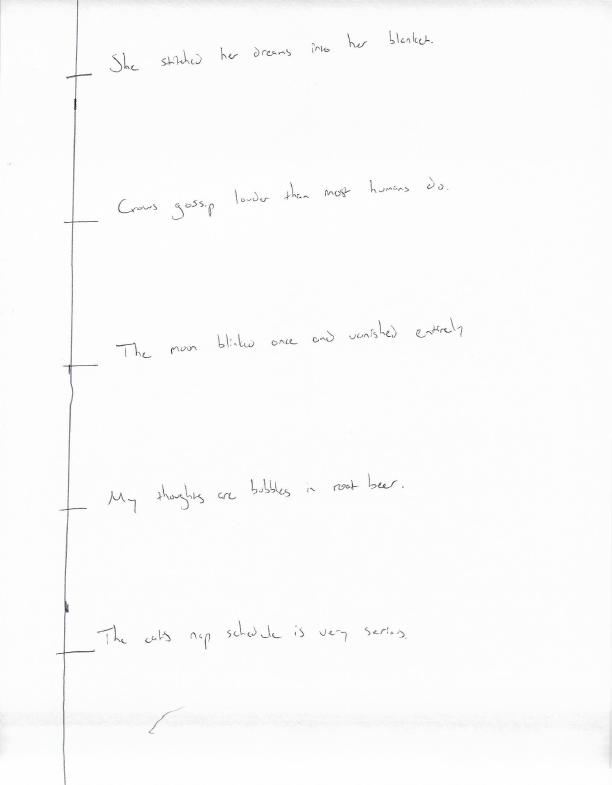 She stitched her dreams into her blanket.
Crows gossip louder than most humans do.
The moon blinked once and vanished entirely
My thoughts are bubbles in root beer.
The cat's nap schedule is very serious.